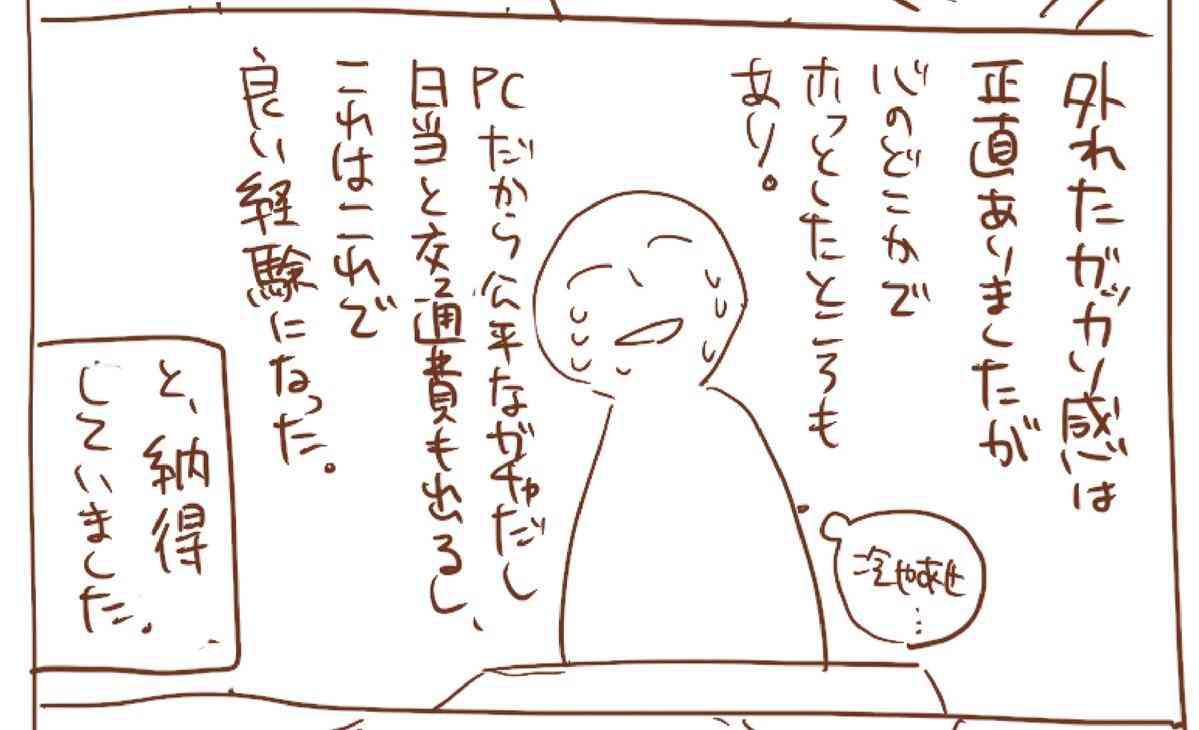 外れたガッカリ感は
正直ありましたが
心のどこかで
ホっとしたところも
あり。
冷やあせ
…
PCだから公平なガチャだし
日当と交通費も出るし、
これはこれで
良い経験になった。
と、納得
していました。